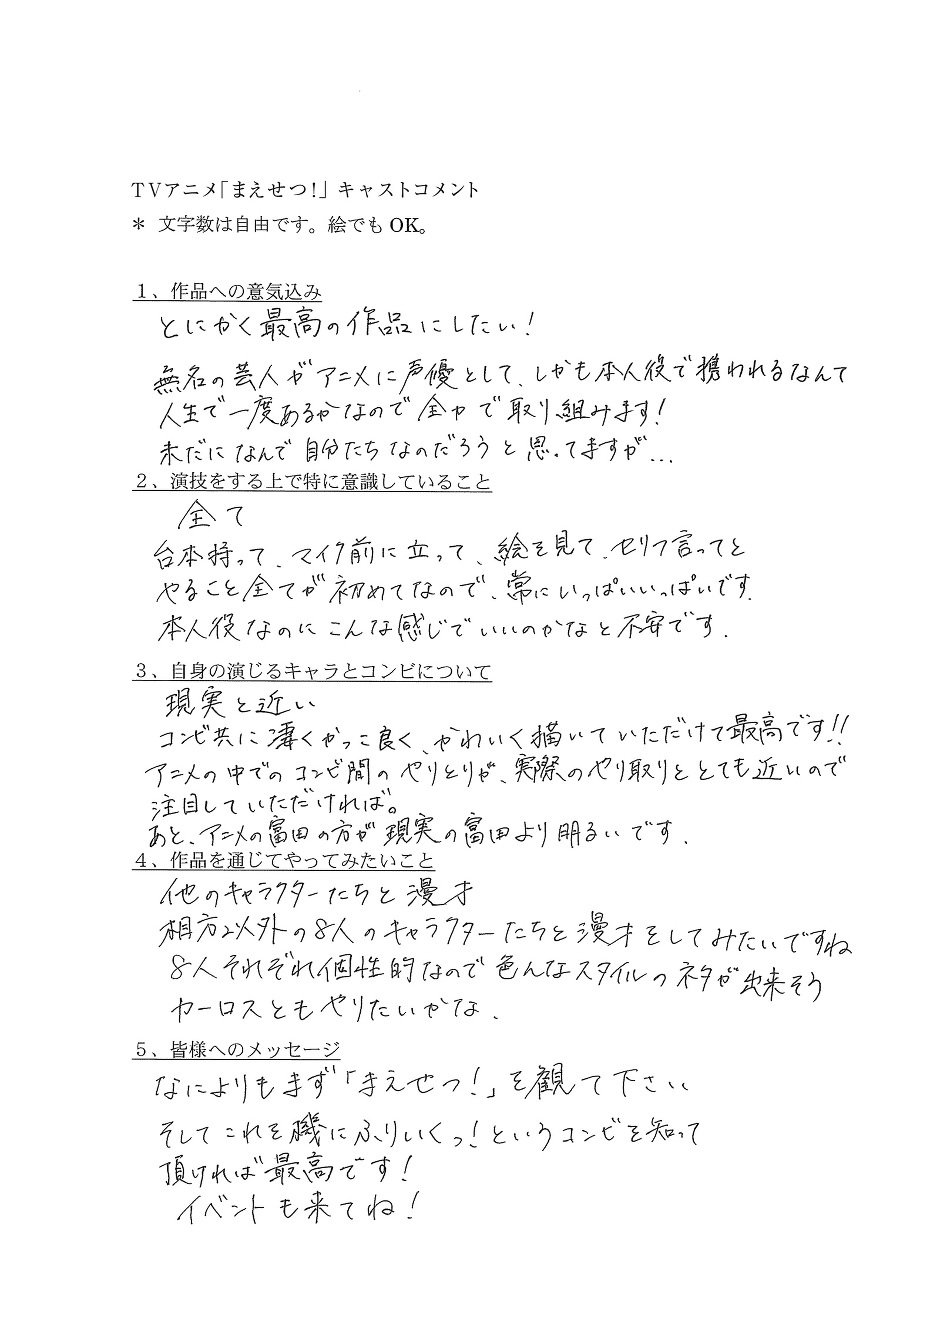 TVアニメ「まえせつ!」キャストコメント
＊ 文字数は自由です。絵でも OK。
１、作品への意気込み
とにかく最高の作品にしたい!
無名の芸人がアニメに声優として、しかも本人役で携われるなんて
人生で一度あるかなので全力で取り組みます!
未だになんで自分たちなのだろうと思ってますが...
２、演技をする上で特に意識していること
全て
台本持って、マイク前に立って、絵を見て、セリフ言ってと
やること全てが初めてなので、常にいっぱいいっぱいです.
本人役なのにこんな感じでいいのかなと不安です.
３、自身の演じるキャラとコンビについて
現実と近い
コンビ共に凄くかっこ良く、かわいく描いていただけて最高です!!
アニメの中でのコンビ間のやりとりが、実際のやり取りととても近いので
注目していただければ。
あと、アニメの富田の方が現実の富田より明るいです.
４、作品を通じてやってみたいこと
他のキャラクターたちと漫才
相方以外の8人のキャラクターたちと漫才をしてみたいですね
8人それぞれ個性的なので色んなスタイルのネタが出来そう
カーロスともやりたいかな.
５、皆様へのメッセージ
なによりもまず「まえせつ!」を観て下さい
そしてこれを機にふりいくっ!というコンビを知って
頂ければ最高です!
イベントも来てね!